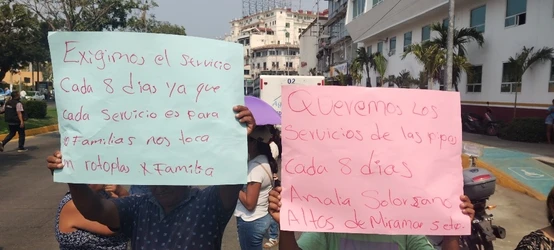 Exigimos el servicio
Cada 8 dias ya que
cada servicio es para
Familias nos toca
n rotoplas x Familia
Queremos Los
Servicios de las pipas
Cada 8 dias
Amalia Solorzano
Altos de Miramar
02